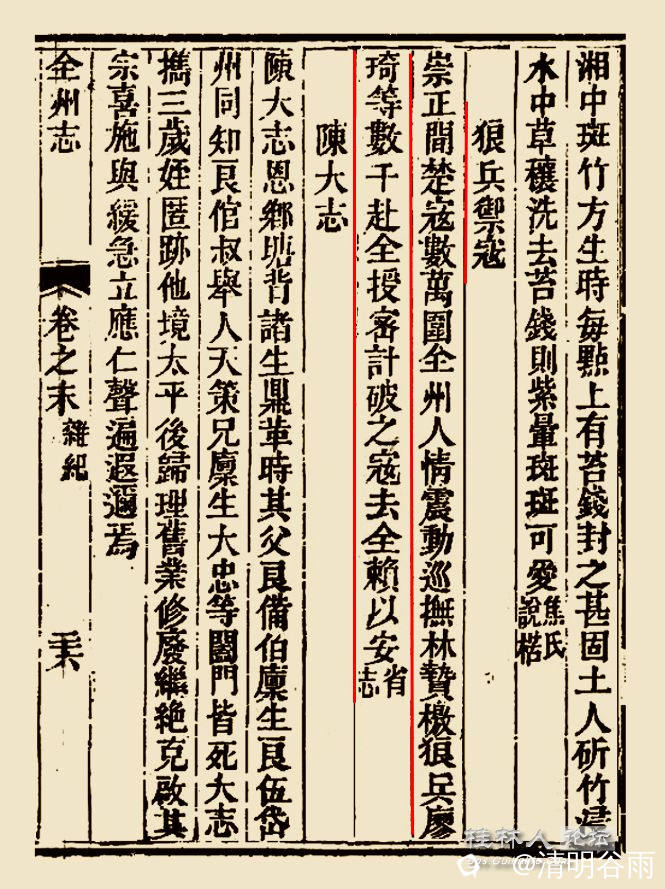 湘中斑竹方生時每點上有苔錢封之甚固土人斫竹浸
水中草穰洗去苔錢則紫暈斑斑可愛焦氏說楛
狼兵禦寇
崇正間楚寇數萬圍全州人情震動巡撫林贄檄狼兵廖
琦等數千赴全授密計破之寇去全賴以安省志
陳大志
陳大志恩鄉塘背諸生鼎革時其父良備伯廪生良伍岱
州同知良倌叔舉人天策兄廪生大忠等闔門皆死大志
擕三歲姪匿跡他境太平後歸理舊業修廢繼絶克啟其
宗喜施與緩急立應仁聲遍遐邇焉
全州志
卷之末
雜紀
桂林人论坛
@清明谷雨